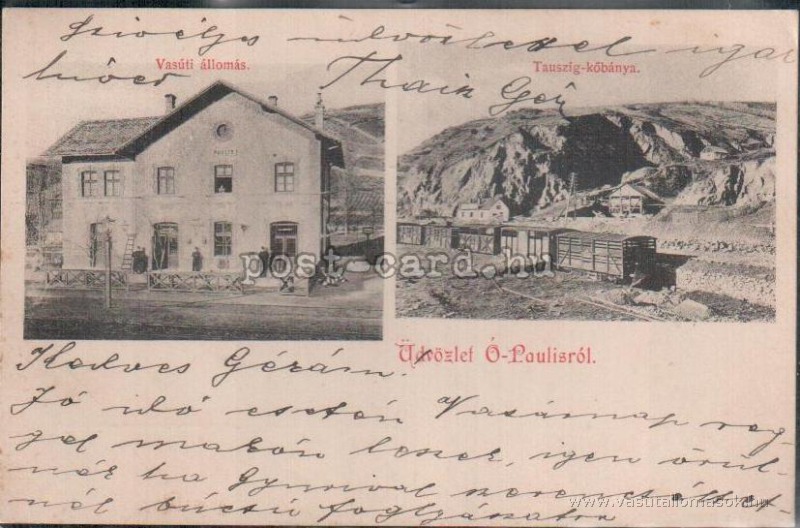 Szivélyes üdvözlettel igaz
hived
Thain Géz
Vasúti állomás.
Tauszig-kőbánya.
PAULIS
post-card.hu
Üdvözlet Ó-Paulisról.
Kedves Gézám.
Jó idő esetén Vasárnap reg
gel makón leszek, igen örül
nék ha Gyurival
nél búcsú foglyászatra
© www.vasutallomasok.hu